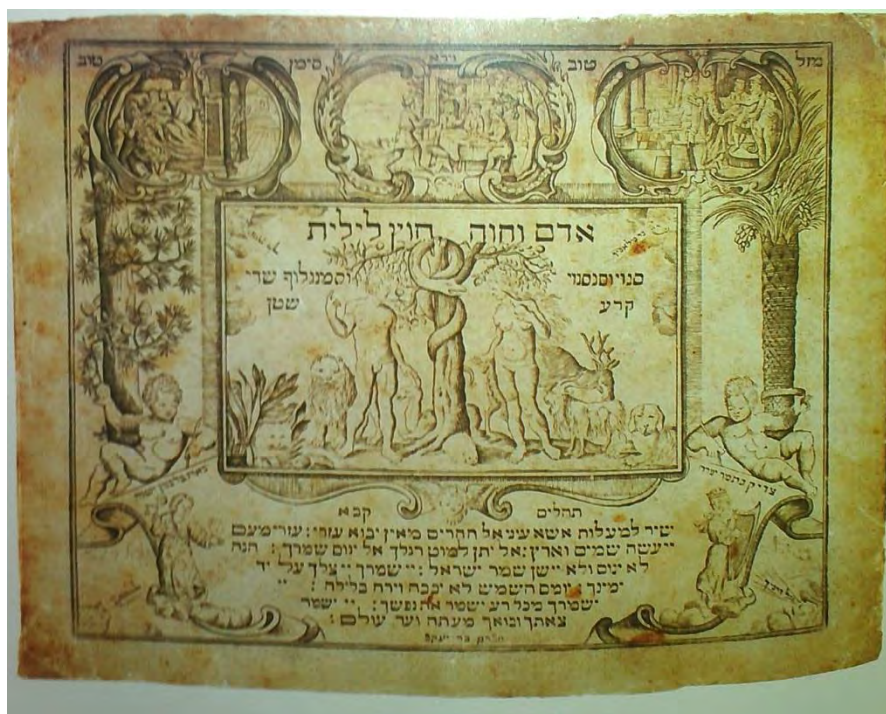 מזל טוב סימן טוב
אדם וחוה חוץ לילית
סנוי וסנסנוי וסמנגלוף שרי
קרע שטן
צדיק כתמר
תהלים קכא
שיר למעלות אשא עיני אל ההרים מאין יבוא עזרי : עזרי מעם
יי עשה שמים וארץ : אל יתן למוט רגלך אל ינום שמרך : הנה
לא ינום ולא יישן שמר ישראל : יי שמרך יי צלך על יד
ימינך : יומם השמש לא יככה וירח בלילה : יי
ישמרך מכל רע ישמר את נפשך : יי ישמר
צאתך ובואך מעתה ועד עולם :